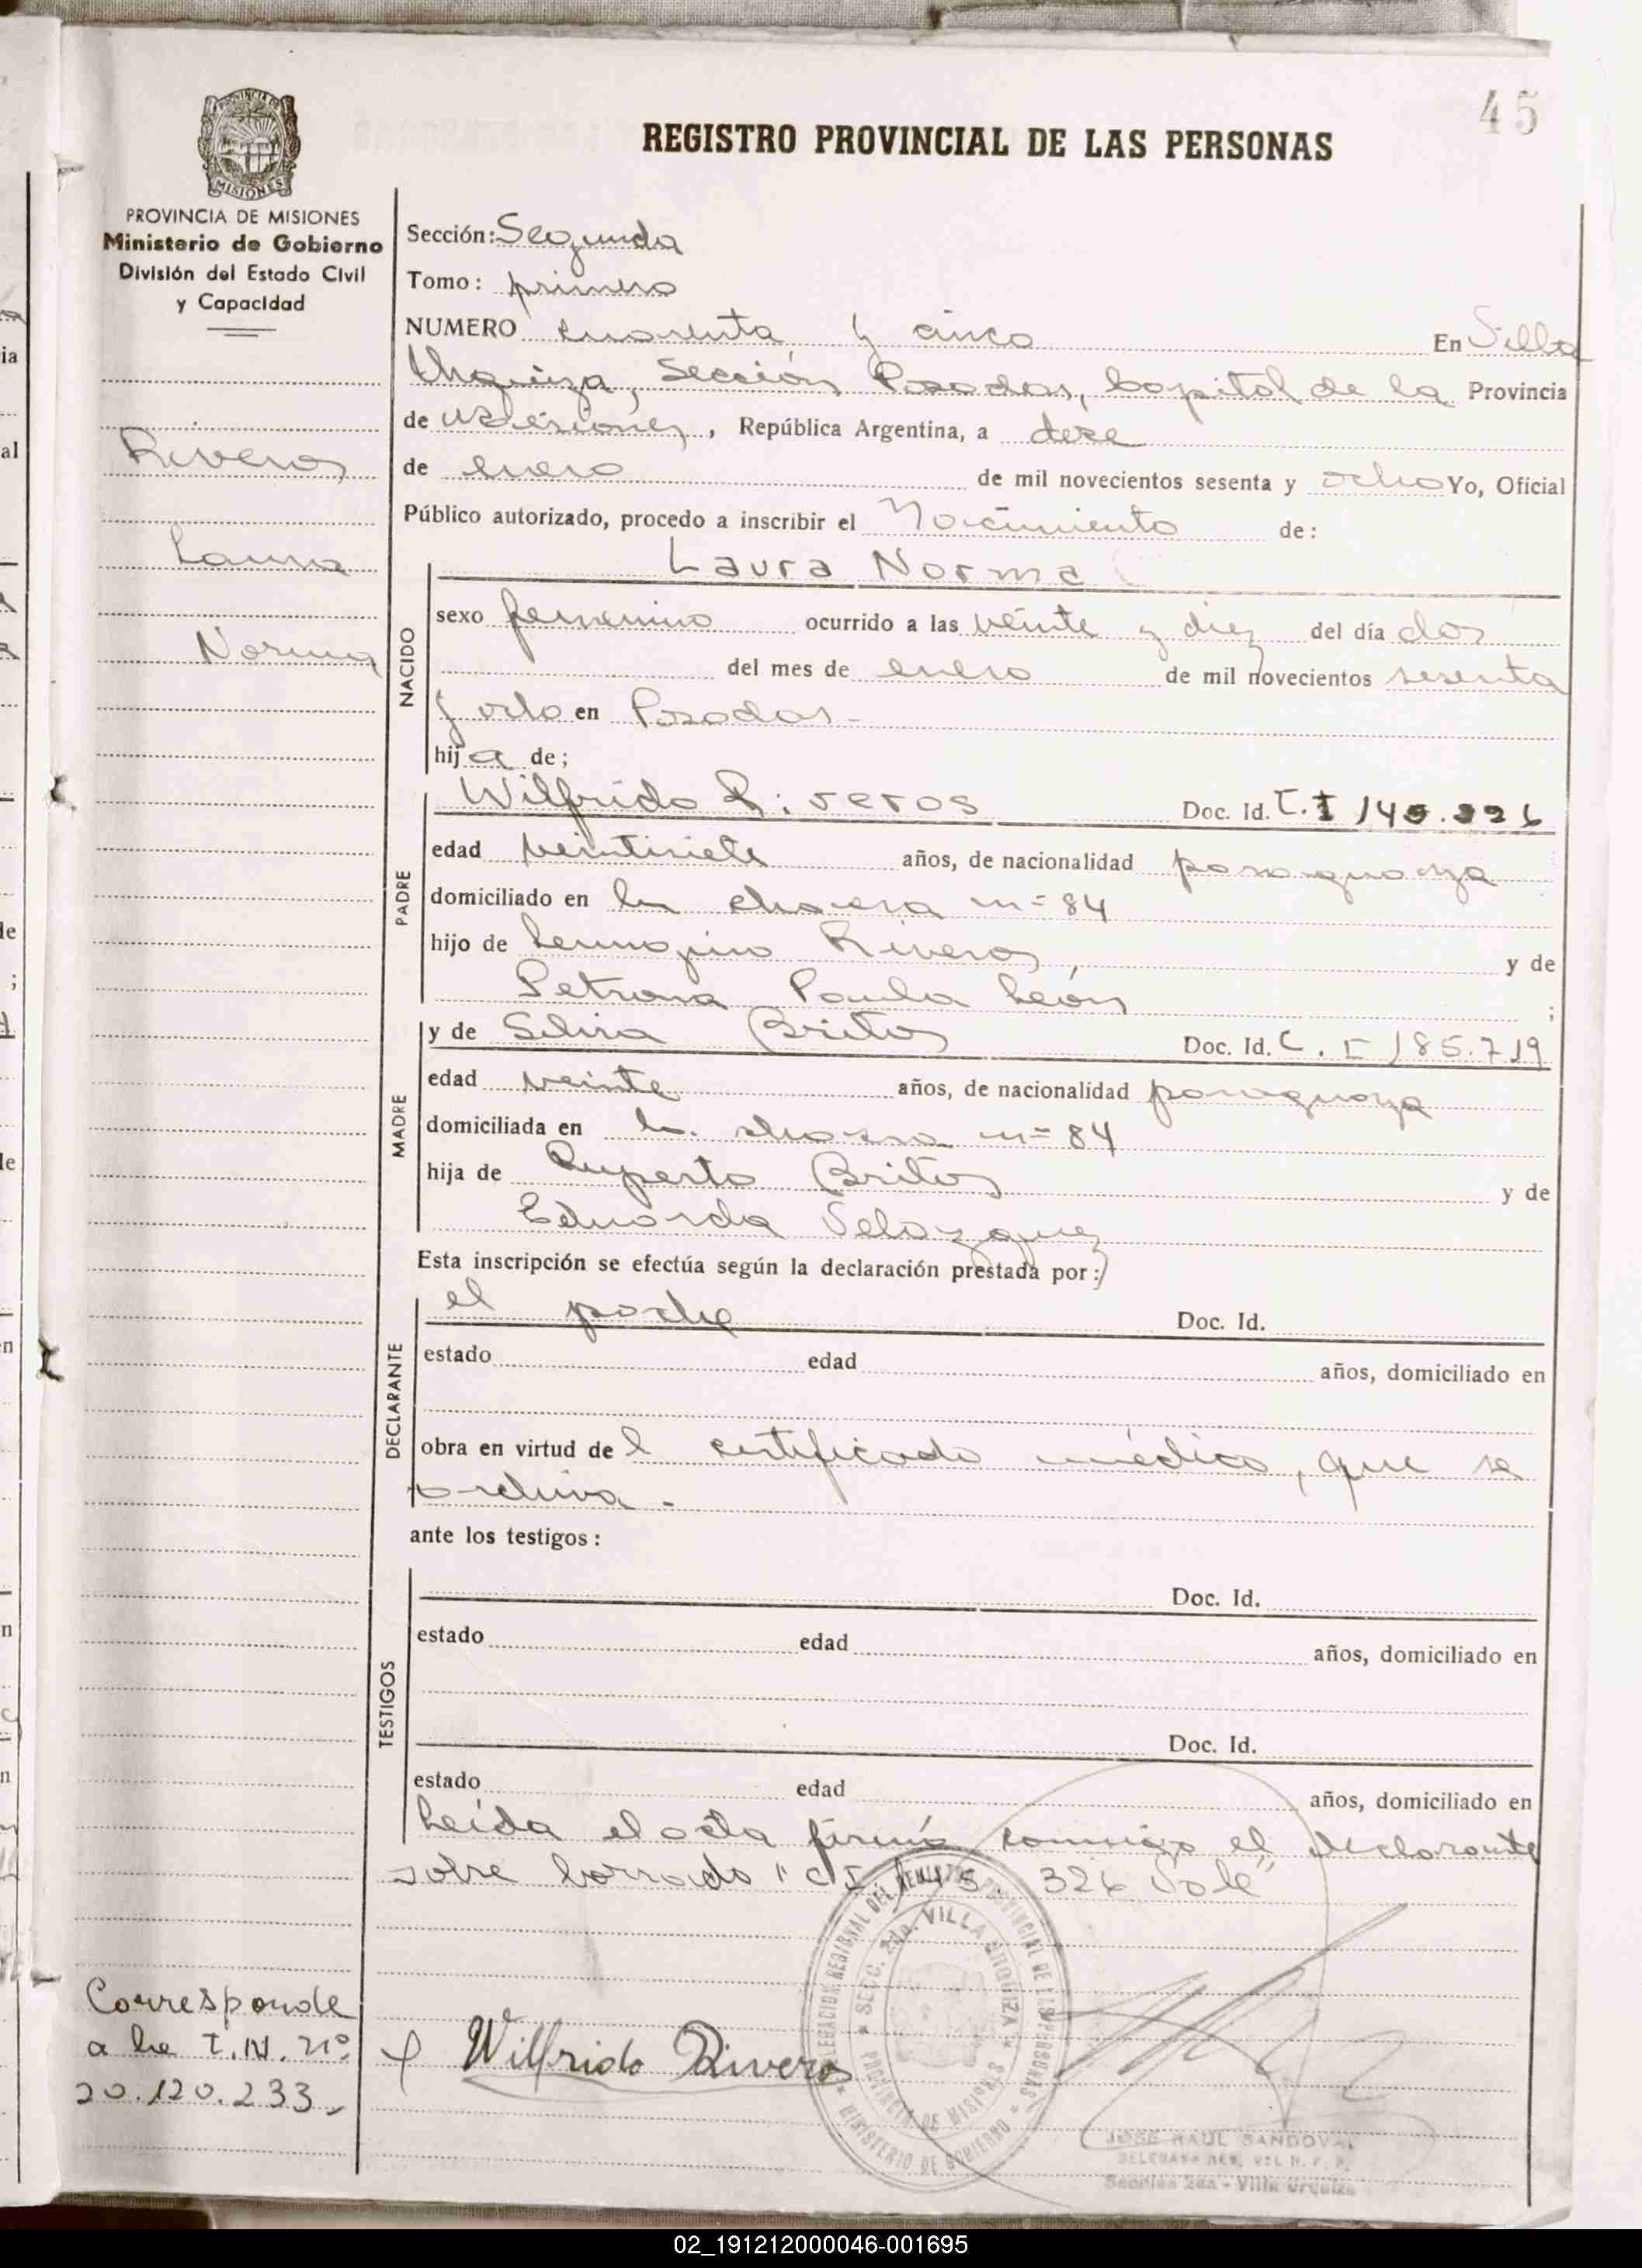 45
REGISTRO PROVINCIAL DE LAS PERSONAS
PROVINCIA DE MISIONES
Ministerio de Gobierno
División del Estado Civil
y Capacidad
Riveros
Laura
Norma
Sección: Segunda
Tomo: primero
NUMERO cuarenta y cinco En Villa
Urquiza, Sección Posadas, Capital de la Provincia
de Misiones, República Argentina, a doce
de enero de mil novecientos sesenta y ocho Yo, Oficial
Público autorizado, procedo a inscribir el Nacimiento de:
Laura Norma
NACIDO
sexo femenino ocurrido a las veinte y diez del día dos
del mes de enero de mil novecientos sesenta
y ocho en Posadas -
hij a de;
PADRE
Wilfrido Riveros Doc. Id. C.I 145.326
edad veintisiete años, de nacionalidad paraguaya
domiciliado en la chacra nº 84
hijo de Riveros, y de
Petrona Paula León ;
MADRE
y de Brítos Doc. Id. C. I 185.719
edad veinte años, de nacionalidad paraguaya
domiciliada en la chacra nº 84
hija de Ruperto Brítos y de
Eduarda Velazquez
Esta inscripción se efectúa según la declaración prestada por:
DECLARANTE
el padre Doc. Id.
estado edad años, domiciliado en
obra en virtud de l certificado médico, que se
archiva -
ante los testigos:
TESTIGOS
Doc. Id.
estado edad años, domiciliado en
Doc. Id.
estado edad años, domiciliado en
Leída el acta firmó conmigo el declarante
sobre borrado "C I 145. 326 Vale"
Corresponde
a la T.N. nº
20.120.233-
Wilfrido Riveros
DELEGACION REGIONAL DEL REGISTRO PROVINCIAL DE LAS PERSONAS
SECC. 2da. VILLA URQUIZA
PROVINCIA DE MISIONES
MINISTERIO DE GOBIERNO
JOSE RAUL SANDOVAL
Sección 2da - Villa Urquiza
02_191212000046-001695